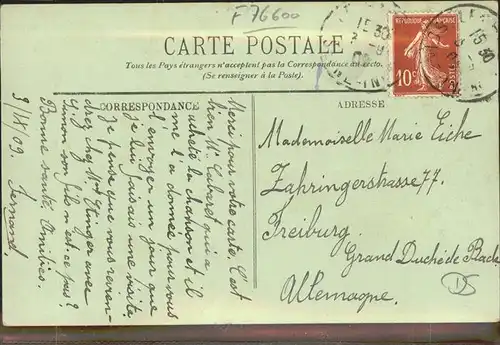 F76600
CARTE POSTALE
Tous les Pays étrangers n'acceptent pas la Correspondance au recto.
(Se renseigner à la Poste).
RÉPUBLIQUE FRANÇAISE
10c
POSTES
15 30
15 30
CORRESPONDANCE
ADRESSE
Merci pour votre carte. C'est
bien Mr Cabaret qui a
acheté la chanson et il
me l'a donnée pour vous
l'envoyer un jour que
je lui faisais une visite.
Je pense que vous revien-
drez chez Mr Etinger avec
Simon son fils n'est-ce pas?
Bonne santé. Amitiés.
Fernand.
3/IX/09.
Mademoiselle Marie Eiche
Zahringerstrasse 77
Freiburg
Grand Duché de Bade
Allemagne.
DS